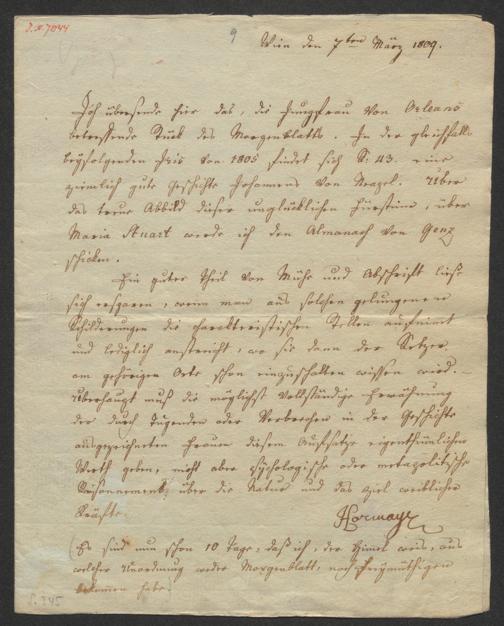 J.N. 7044
9
Wien den 7ten März 1809.
Ich übersende hier das, die Jungfrau von Orleans
betreffende Stück des Morgenblatts. In der gleichfalls
beyfolgenden Iris von 1805 findet sich S: 43. eine
ziemlich gute Geschichte Johannens von Neapel. Über
das treue Abbild dieser unglücklichen Fürstinn, über
Maria Stuart werde ich den Almanach von Genz
schicken.
Ein guter Theil von Mühe und Abschrift ließe
sich ersparen, wenn man aus solchen gelungenen
Schilderungen die charakteristischen Stellen aufnimt
und lediglich anstreicht, wo sie dann der Setzer
am gehörigen Orte schon einzuschalten wissen wird. –
Überhaupt muß die möglichst vollständige Erwähnung
der durch Tugenden oder Verbrechen in der Geschichte
ausgezeichneten Frauen diesem Aufsatze eigenthümlichen
Werth geben, nicht aber psychologische oder metapolitische
Räsonnements über die Natur und das Spiel weiblicher
Kräfte.
Hormayr
(Es sind nun schon 10 Tage, daß ich, der Himel weis, aus
welcher Unordnung weder Morgenblatt, noch Freymüthigen
bekommen habe.)
S. 345